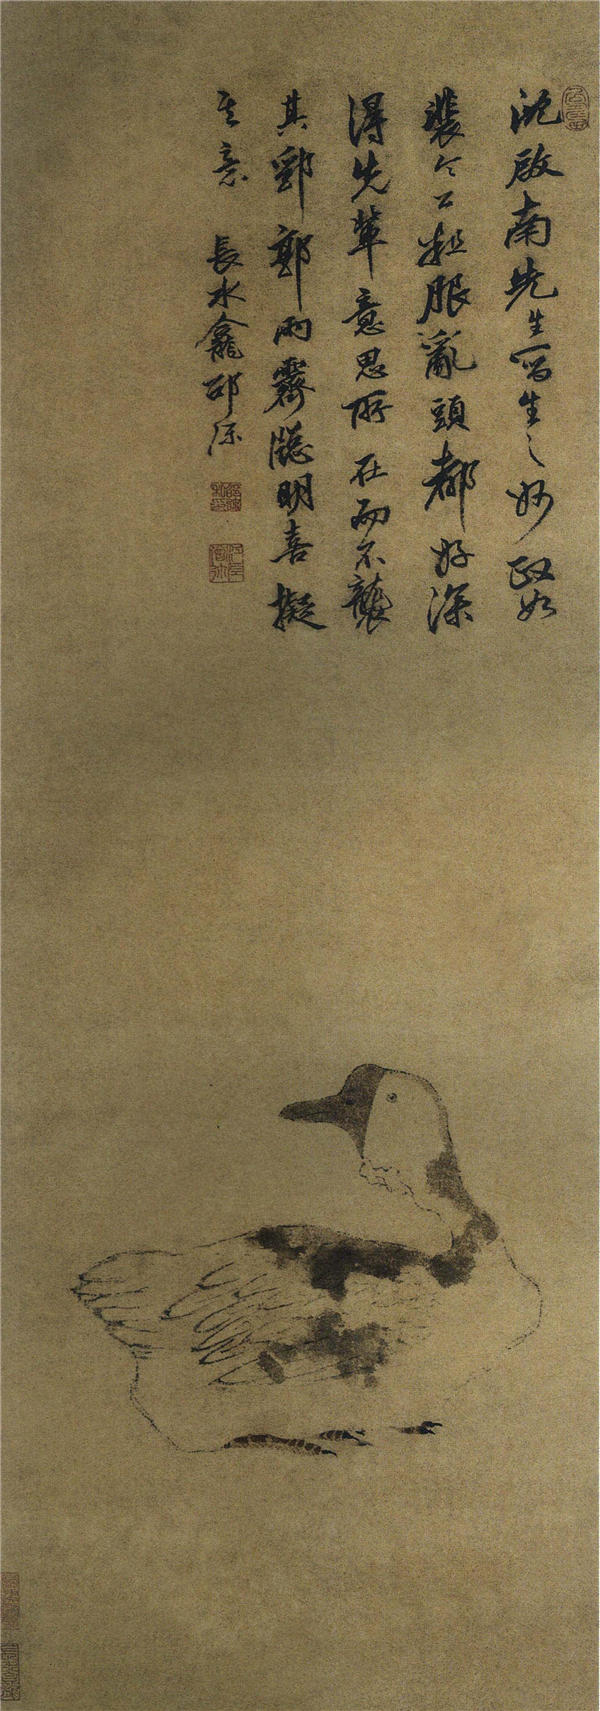 沈啟南先生寫生之妙政如
裴令公粗服亂頭都好深
得先輩意思所在而不襲
其郛郭雨霽牕明喜擬
其意 長水龕邵